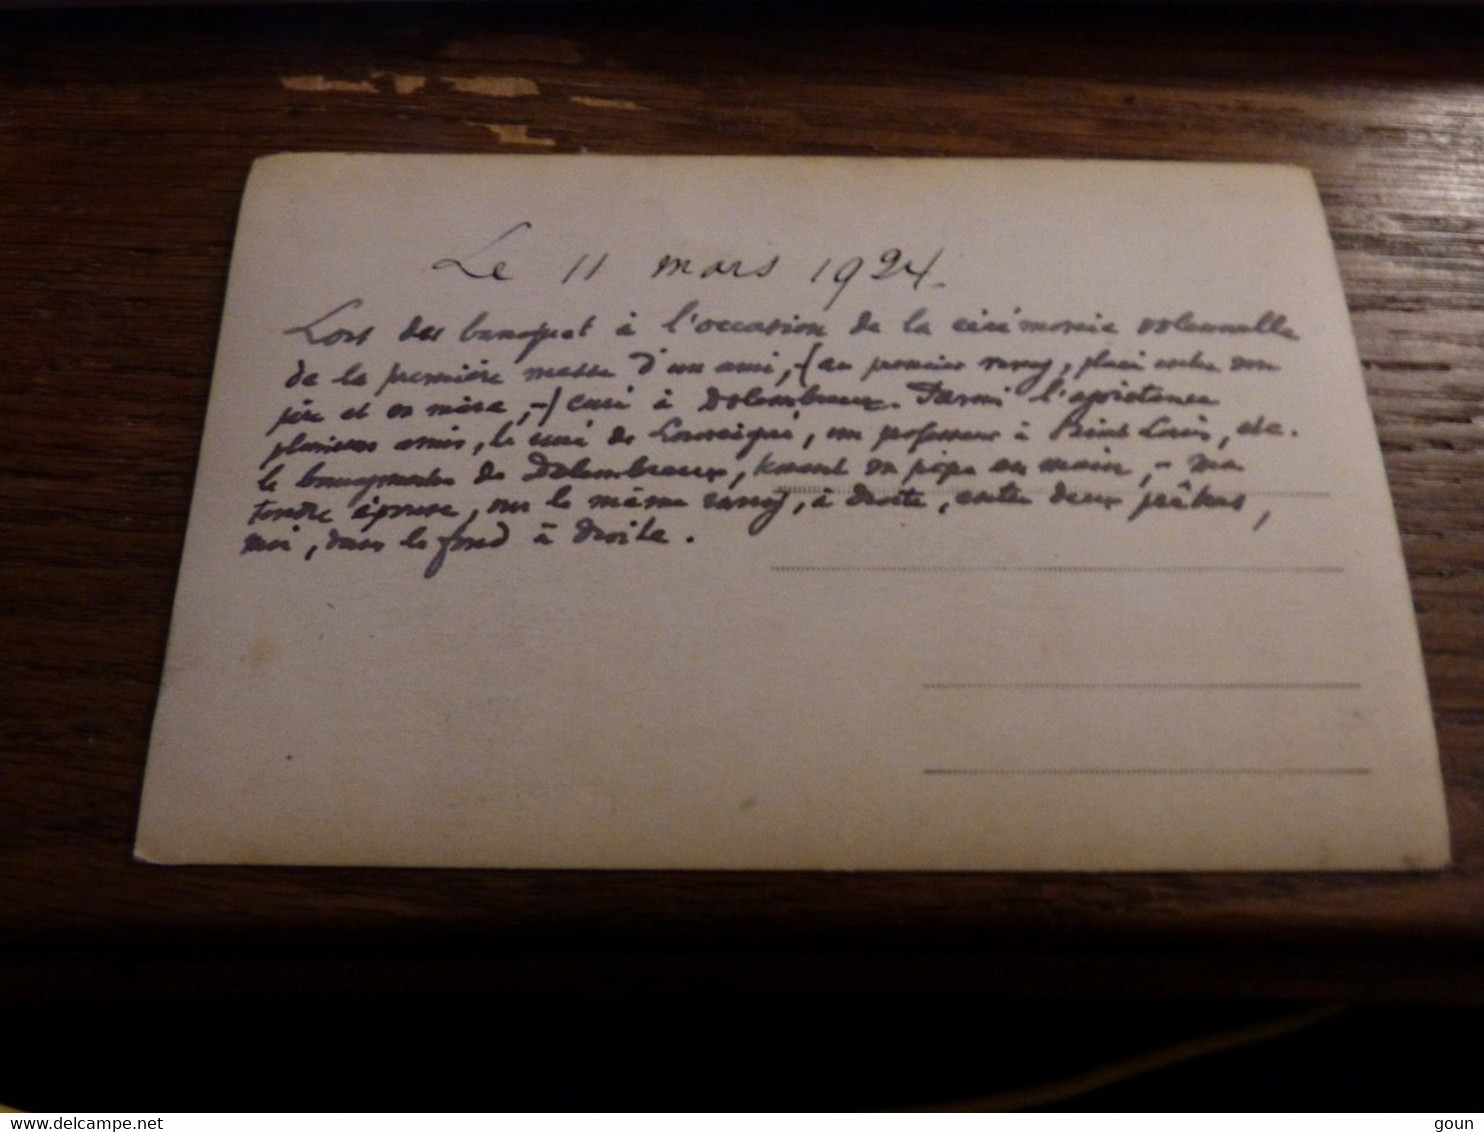 Le 11 mars 1924.
Lors des banquet à l'occasion de la cérémonie solennelle
de la première messe d'un ami, -(au premier rang, placé entre son
père et sa mère, -) curé à Dolembreux. Parmi l'assistance
plusieurs amis, le curé de Louveigné, un professeur à Saint Louis, etc.
le bourgmestre de Dolembreux, tenant sa pipe en main, - ma
tendre épouse, sur le même rang, à droite, entre deux prêtres,
moi, dans le fond à droite.
goun